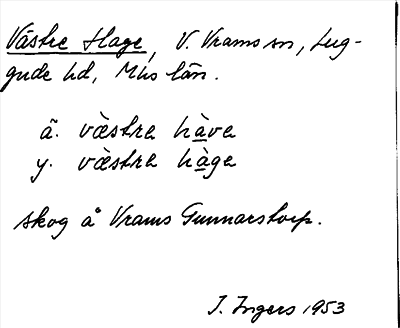 Västre Hage, V. Vrams sn, Lug-
gude hd, Mhs län.
ã. væ̀stra hà̲va
y. væ̀stra hà̲ga
skog å Vrams Gunnarstorp.
I. Ingers 1953